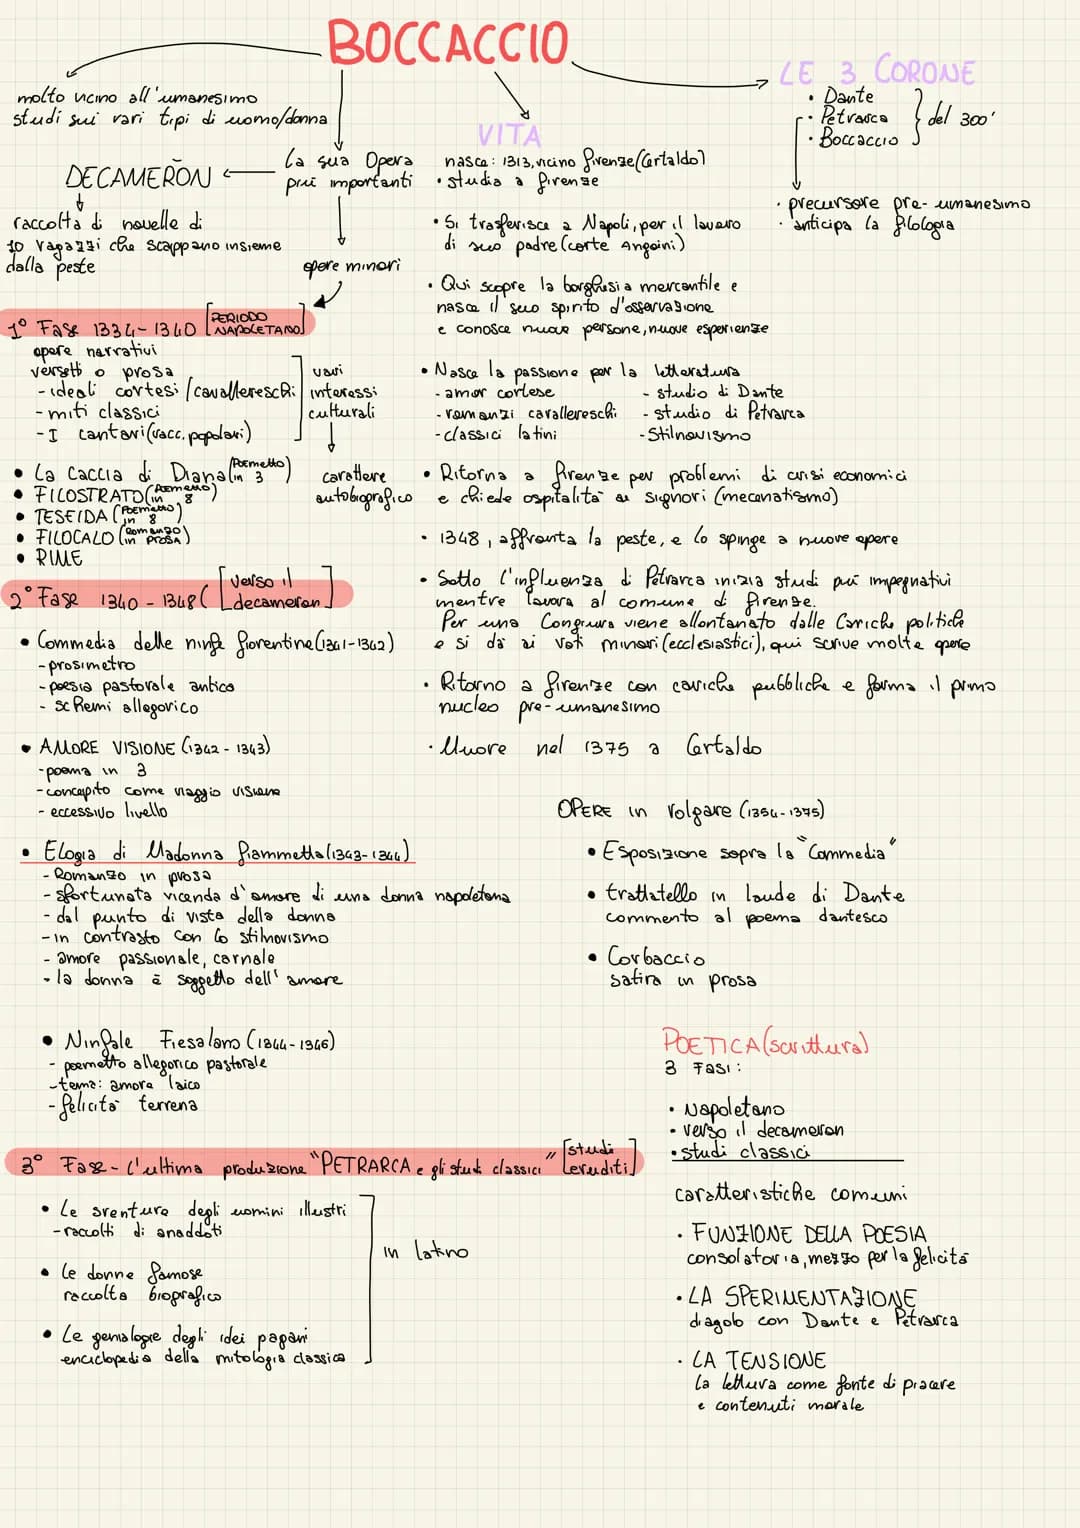 BOCCACCIO
molto vicino all'umanesimo
studi sui vari tipi di uomo/donna
DECAMERON
raccolta di novelle di
10 ragazzi che scappano insieme
dalla peste
La sua Opera
più importanti
opere minori
VITA
nasce: 1313, vicino Firenze (Certaldo)
• studia a Firenze
• Si trasferisce a Napoli, per il lavoro
di suo padre (corte Angoini)
• Qui scopre la borghesia mercantile e
nasce il suo spirito d'osservazione
e conosce nuove persone, nuove esperienze
• Nasce la passione per la letteratura
- amor cortese
- romanzi cavallereschi
- classici latini
- studio di Dante
- studio di Petrarca
- Stilnovismo
• Ritorna a Firenze per problemi di crisi economici
e chiede ospitalità ai signori (mecenatismo)
• 1348, affronta la peste, e lo spinge a nuove opere
• Sotto l'influenza di Petrarca inizia studi più impegnativi
mentre lavora al comune di Firenze.
Per una Congiura viene allontanato dalle Cariche politiche
e si dà ai voti minori (ecclesiastici), qui scrive molte opere
• Ritorno a Firenze con cariche pubbliche e forma il primo
nucleo pre-umanesimo
• Muore nel 1375 a Certaldo
LE 3 CORONE
• Dante
• Petrarca
• Boccaccio
del 300'
• precursore pre-umanesimo
• anticipa la filologia
1° Fase 1334-1340 [PERIODO
NAPOLETANO]
opere narrativi
versetti o prosa
- ideali cortesi/cavallereschi
- miti classici
- I cantari (racc. popolari)
vari
interessi
culturali
carattere
autobiografico
• La Caccia di Diana (Poemetto in 3)
• FILOSTRATO (Poemetto in 8)
• TESEIDA (Poemetto in 8)
• FILOCALO (Romanzo in PROSA)
• RIME
2° Fase 1340-1348 ( [verso il
decameron]
• Commedia delle ninfe fiorentine (1341-1342)
- prosimetro
- poesia pastorale antica
- schemi allegorico
• AMORE VISIONE (1342-1343)
- poema in 3
- concepito come viaggio visione
- eccessivo livello
• Elogia di Madonna Fiammetta (1343-1344)
- Romanzo in prosa
- sfortunata vicenda d'amore di una donna napoletana
- dal punto di vista della donna
- in contrasto con lo stilnovismo
- amore passionale, carnale
- la donna è soggetto dell'amore
• Ninfale Fiesolano (1344-1346)
- poemetto allegorico pastorale
- tema: amore laico
- felicità terrena
3° Fase - L'ultima produzione "PETRARCA e gli studi classici" [studi
eruditi]
• Le sventure degli uomini illustri
- raccolti di anaddoti
• Le donne famose
raccolta biografico
• Le genialogie degli idei pagani
enciclopedia della mitologia classica
in latino
OPERE in volgare (1354-1375)
• Esposizione sopra la "Commedia"
• trattatello in laude di Dante
commento al poema dantesco
• Corbaccio
satira in prosa
POETICA (scrittura)
3 FASI:
• Napoletano
• verso il decameron
• studi classici
caratteristiche comuni
• FUNZIONE DELLA POESIA
consolatoria, mezzo per la felicità
• LA SPERIMENTAZIONE
dialogo con Dante e Petrarca
• LA TENSIONE
la lettura come fonte di piacere
e contenuti morale